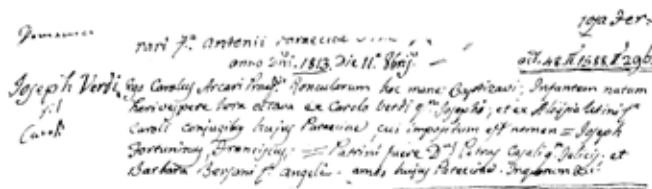 nari f.ª Antonii
anno Dñi. 1813. Die 11.ª 8brij
Joseph Verdi
fil
Caroli
Ego Carolus Arcari Præd.s Roncularum hoc mane Baptizavi Infantem natum
heri vespere hora octava ex Carolo Verdi q.m Josepho, et ex Aloisia Utini f.ª
Caroli conjugibus hujus Paroeciæ, cui impositum est nomen = Joseph
Fortuninus, Franciscus = Patrini fuere D.us Petrus Casali q.m Felicis et
Barbara Bersani f.ª Angeli ambo hujus Paroeciæ.